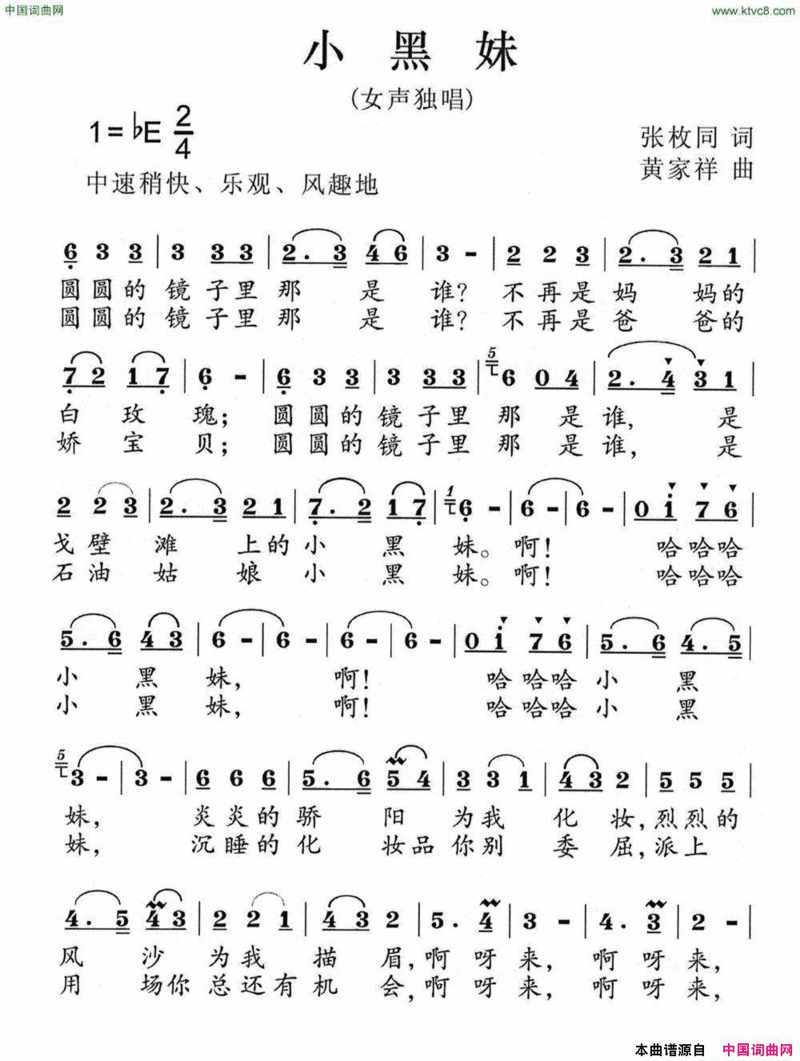 中国词曲网
www.ktvc8.com
小黑妹
(女声独唱)
1=♭E 2/4
张枚同 词
中速稍快、乐观、风趣地
黄家祥 曲
6 3 3 | 3 3 3 | 2. 3 4 6 | 3 - | 2 2 3 | 2. 3 2 1 |
圆圆的镜子里那 是 谁?不再是妈 妈的
圆圆的镜子里那 是 谁?不再是爸 爸的
7 2 1 7 | 6 - | 6 3 3 | 3 3 3 | 5 6 0 4 | 2. 4 3 1 |
白 玫 瑰; 圆圆的镜子里那 是谁, 是
娇 宝 贝; 圆圆的镜子里那 是谁, 是
2 2 3 | 2. 3 2 1 | 7. 2 1 7 | 1 6 - | 6 - | 0 i 7 6 |
戈壁滩 上的小 黑 妹。啊! 哈哈哈
石油姑 娘小 黑 妹。啊! 哈哈哈
5. 6 4 3 | 6 - | 6 - | 0 i 7 6 | 5. 6 4. 5 |
小 黑 妹, 啊! 哈哈哈小 黑
小 黑 妹, 啊! 哈哈哈小 黑
5 3 - | 3 - | 6 6 6 | 5. 6 5 4 | 3 3 1 | 4 3 2 | 2 2 2 |
妹, 炎炎的骄 阳 为我 化 妆,烈烈的
妹, 沉睡的化 妆品你别 委 屈,派上
4. 5 4 3 | 2 2 1 | 4 3 2 | 5. 4 | 3 - | 4. 3 | 2 - |
风 沙 为我 描 眉,啊 呀 来, 啊 呀 来,
用 场你 总还有机 会,啊 呀 来, 啊 呀 来,
本曲谱源自 中国词曲网